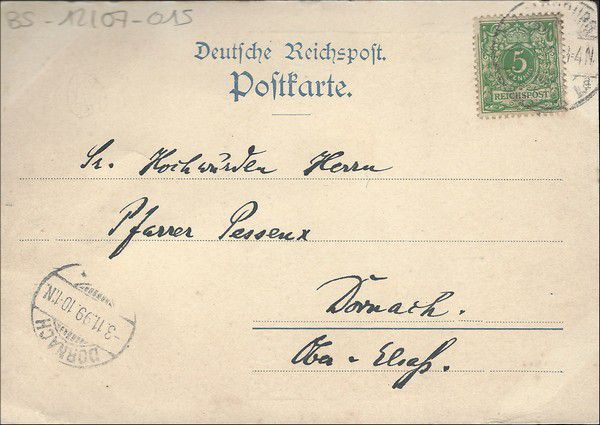 BS-12/07-015
Deutsche Reichspost.
Postkarte.
5
REICHSPOST
-4.N.
Sr. Hochwürden Herrn
Pfarrer Pessenx
Dornach.
Ober-Elsaß.
DORNACH
-3.11.99.10-11.N.